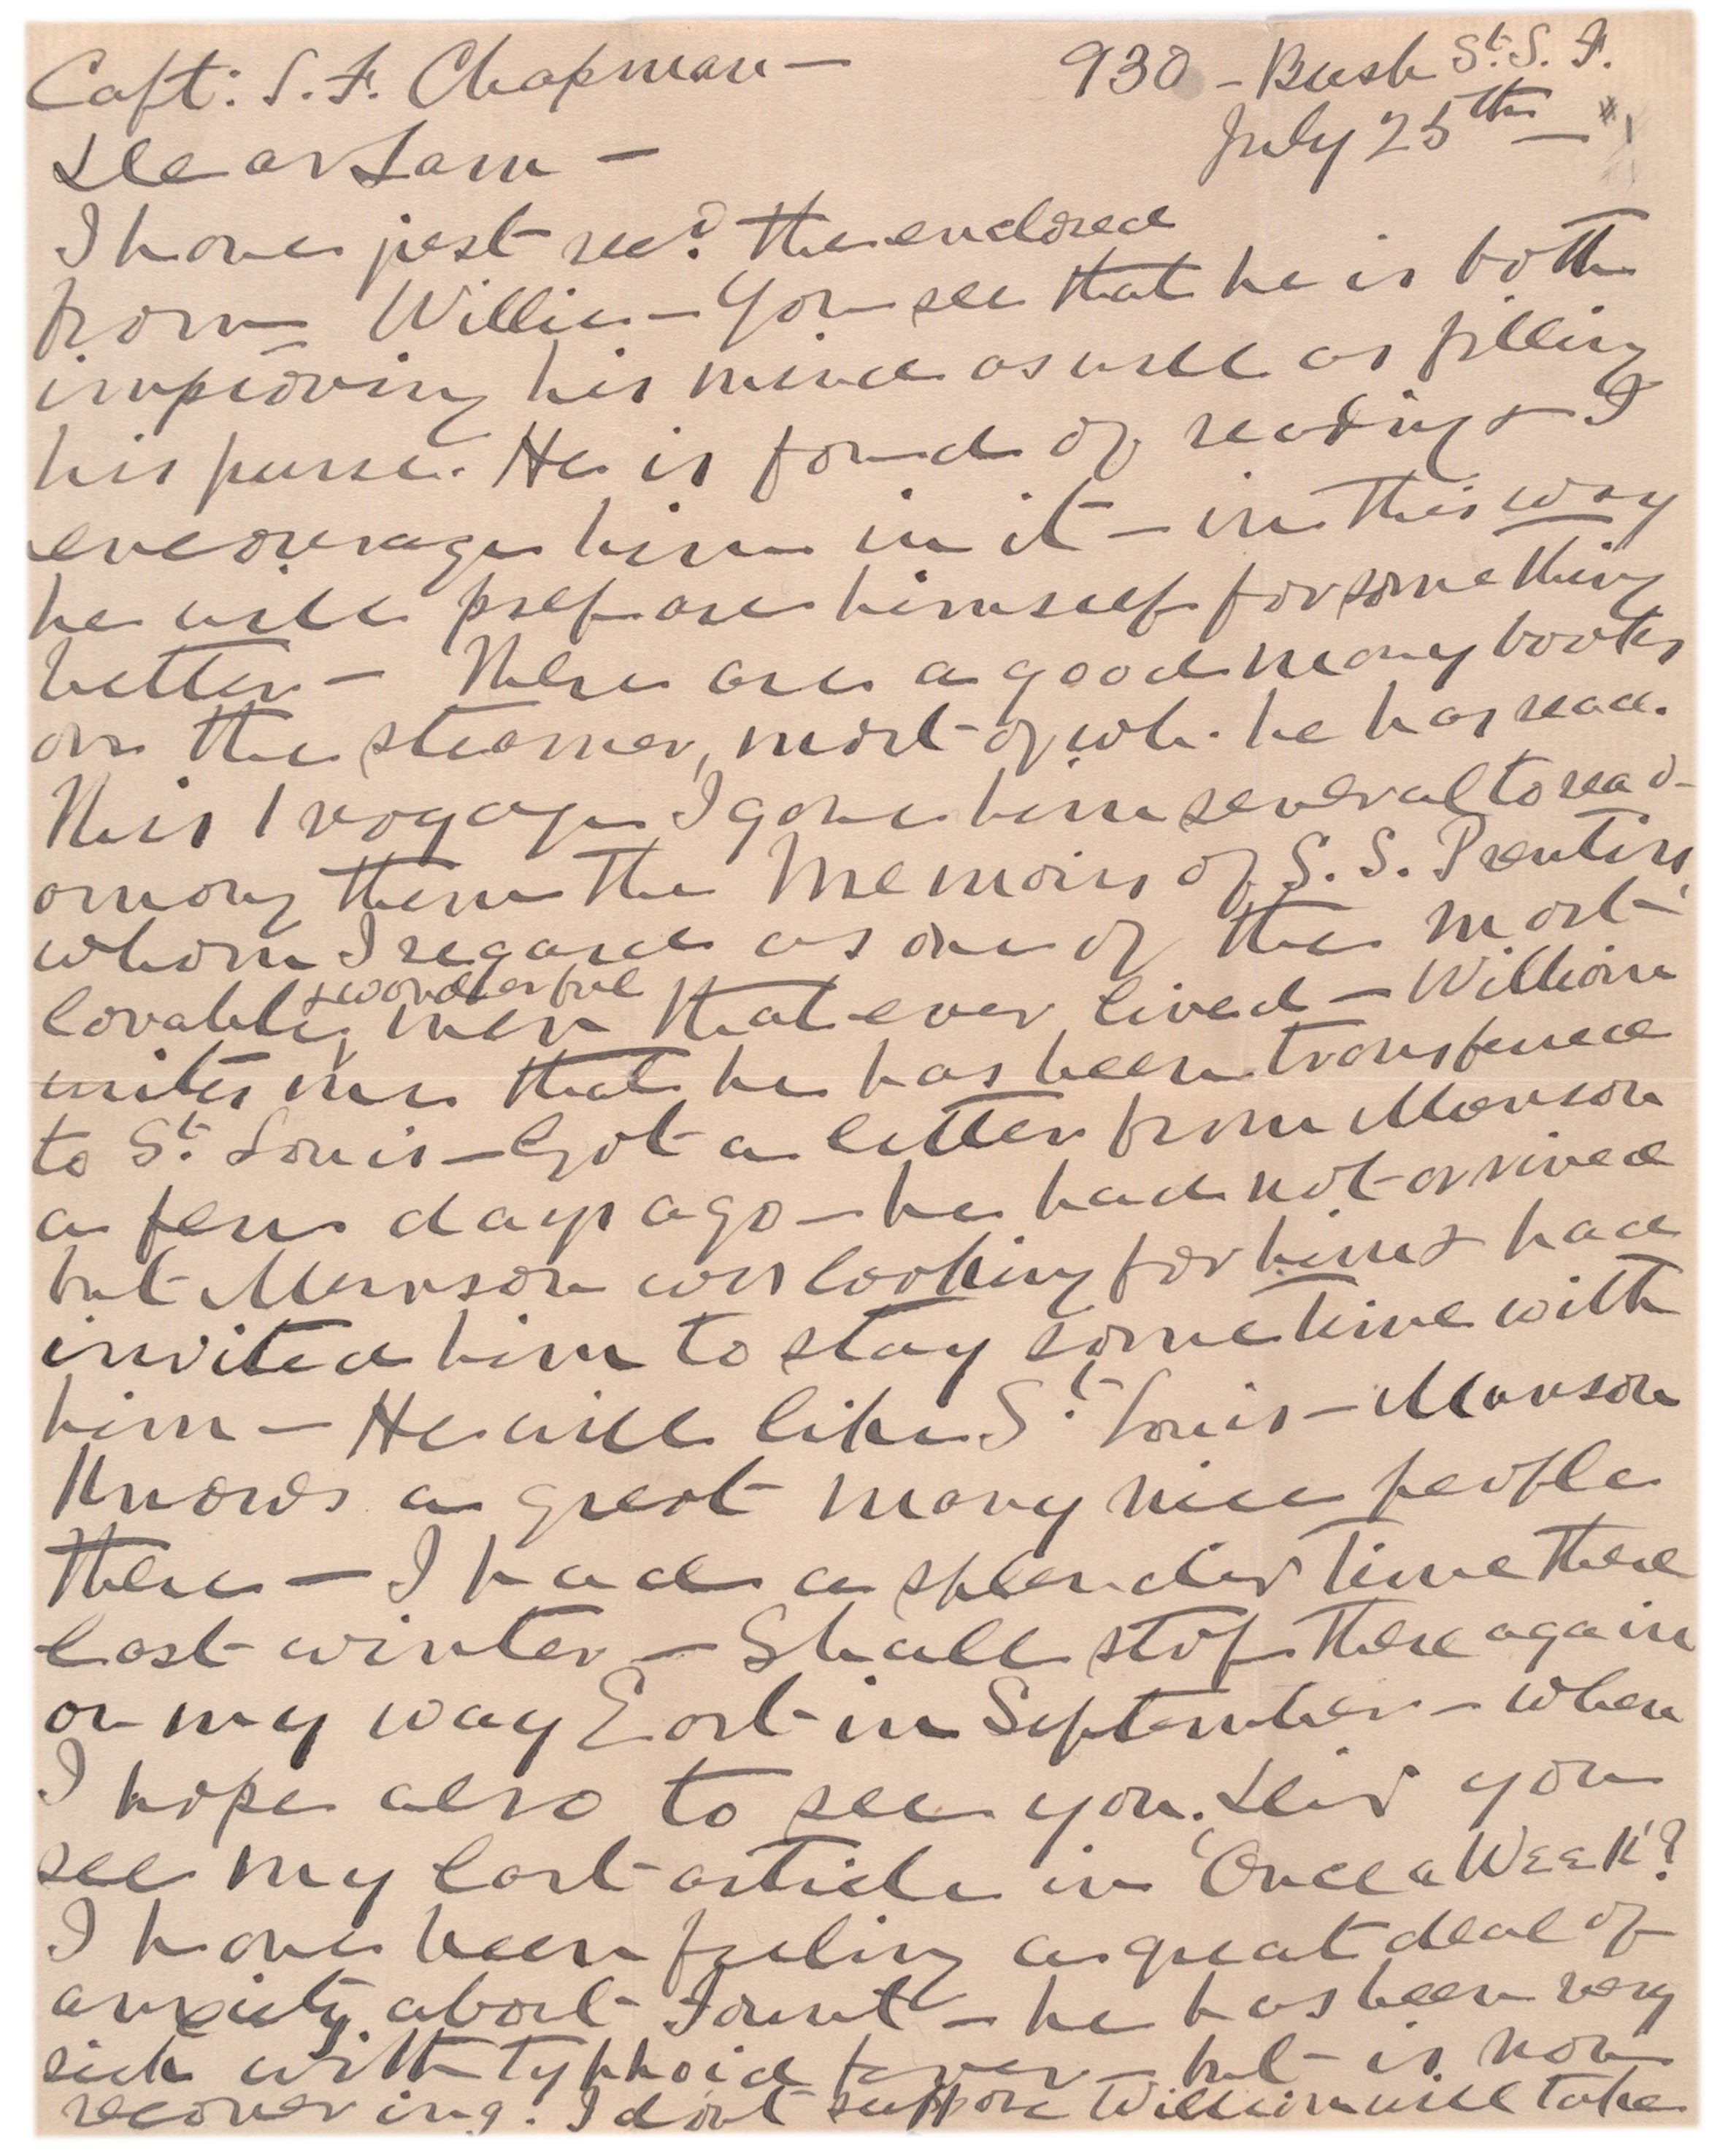 Capt: S. F. Chapman —
930 - Bush St. S. F.
July 25th — #1
Dear Sam —
I have just recd. the enclosed
from Willie — You see that he is both
improving his mind as well as filling
his purse. He is fond of reading & I
encourage him in it — in this way
he will prepare himself for something
better — There are a good many books
on the steamer, most of wh. he has read.
This voyage I gave him several to read -
among them the Memoirs of S. S. Prentiss,
whom I regard as one of the most
lovable & wonderful men that ever lived — William
writes me that he has been transferred
to St. Louis — Got a letter from Munson
a few days ago — he had not arrived
but Munson was looking for him & had
invited him to stay sometime with
him — He will like St. Louis — Munson
knows a great many nice people
there — I had a splendid time there
last winter — Shall stop there again
on my way East in September — when
I hope also to see you. Did you
see my last article in 'Once a Week'?
I have been feeling a great deal of
anxiety about Fount — he has been very
sick with typhoid fever — but is now
recovering. I don't suppose William will take